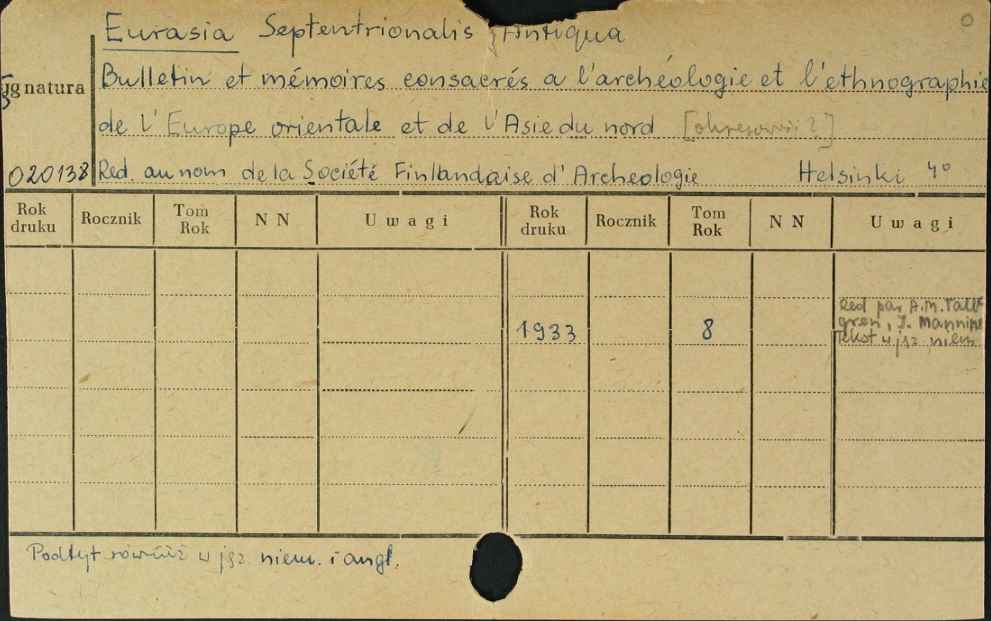 Eurasia Septentrionalis Antiqua
Sygnatura
Bulletin et mémoires consacrés a l'archéologie et l'ethnographie
de l'Europe orientale et de l'Asie du nord
020138 Red. au nom de la Société Finlandaise d'Archeologie Helsinki 4°
Rok druku Rocznik Tom Rok NN Uwagi Rok druku Rocznik Tom Rok NN Uwagi
1933 8 Red par A.M. Tall-
gren, J. Mannine
Tekst w jęz. niem.
Podtyt również w jęz. niem. i angl.